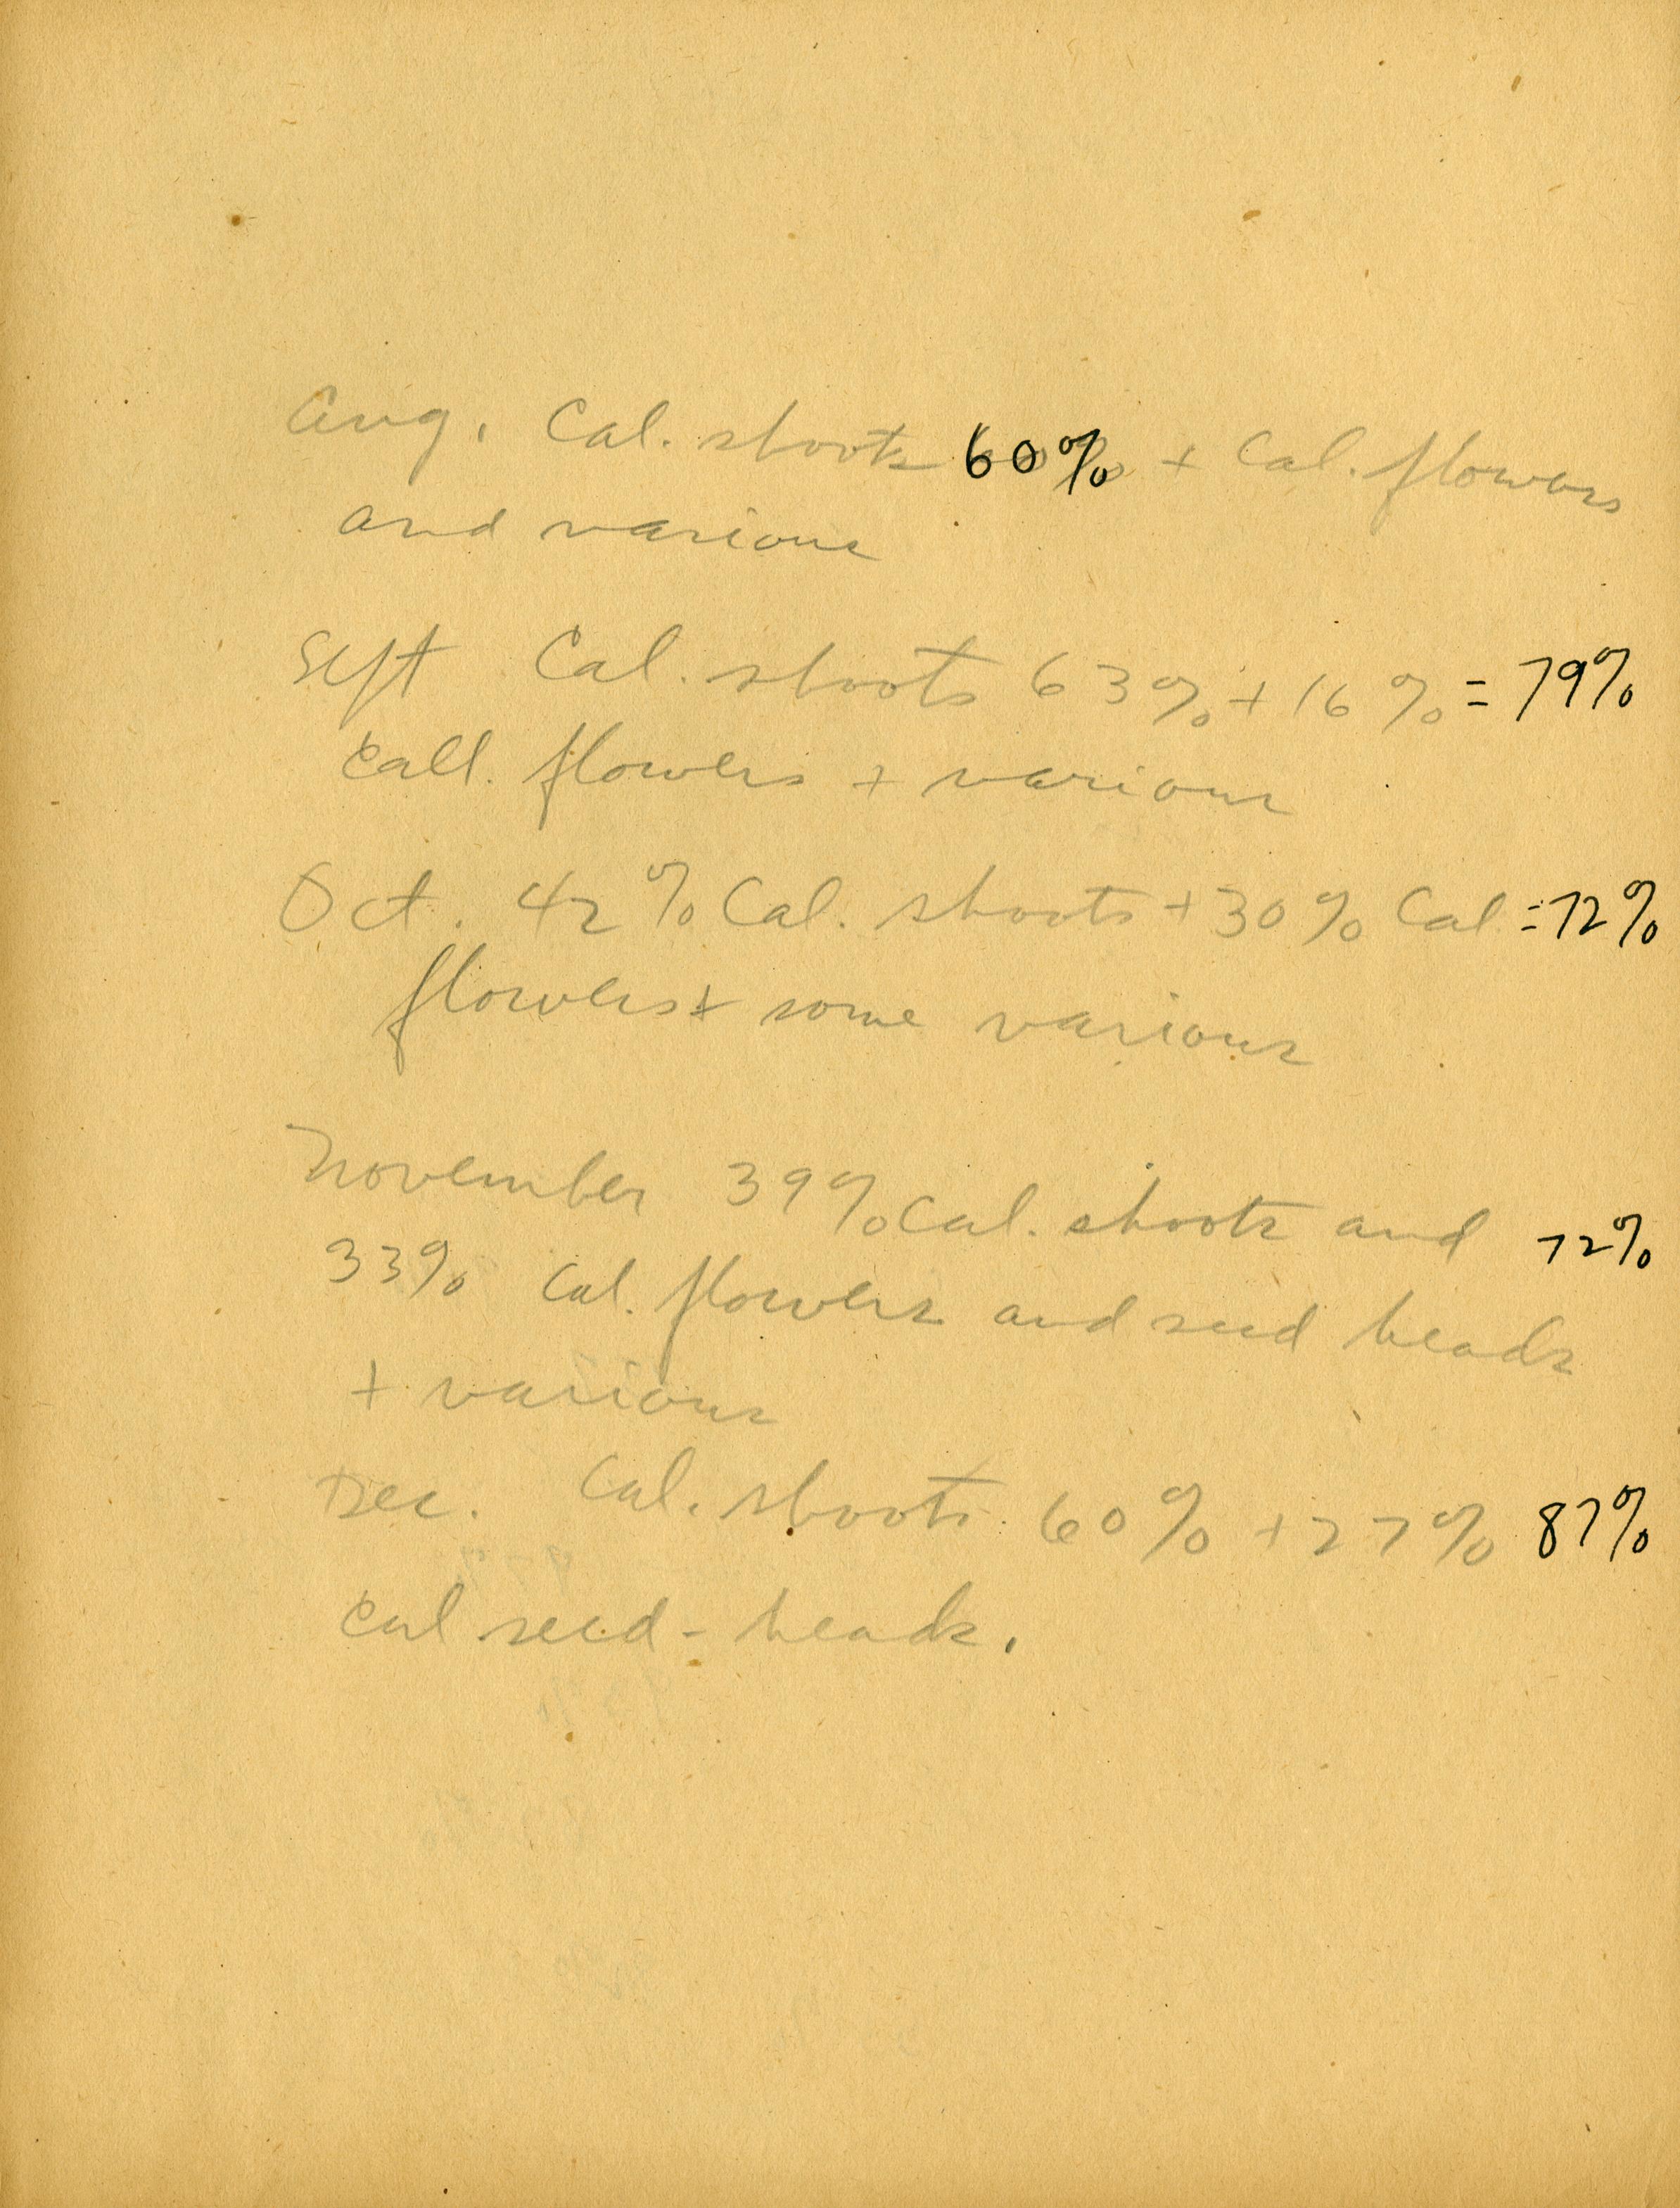 Aug. Cal. shoots 60% + Cal. flowers
and various
Sept Cal. shoots 63% + 16% = 79%
Call. flowers + various
Oct. 42% Cal. shoots + 30% Cal = 72%
flowers + some various
November 39% Cal. shoots and 72%
33% Cal. flowers and seed heads
+ various
Dec. Cal. shoots 60% + 27% 87%
Cal seed-heads.